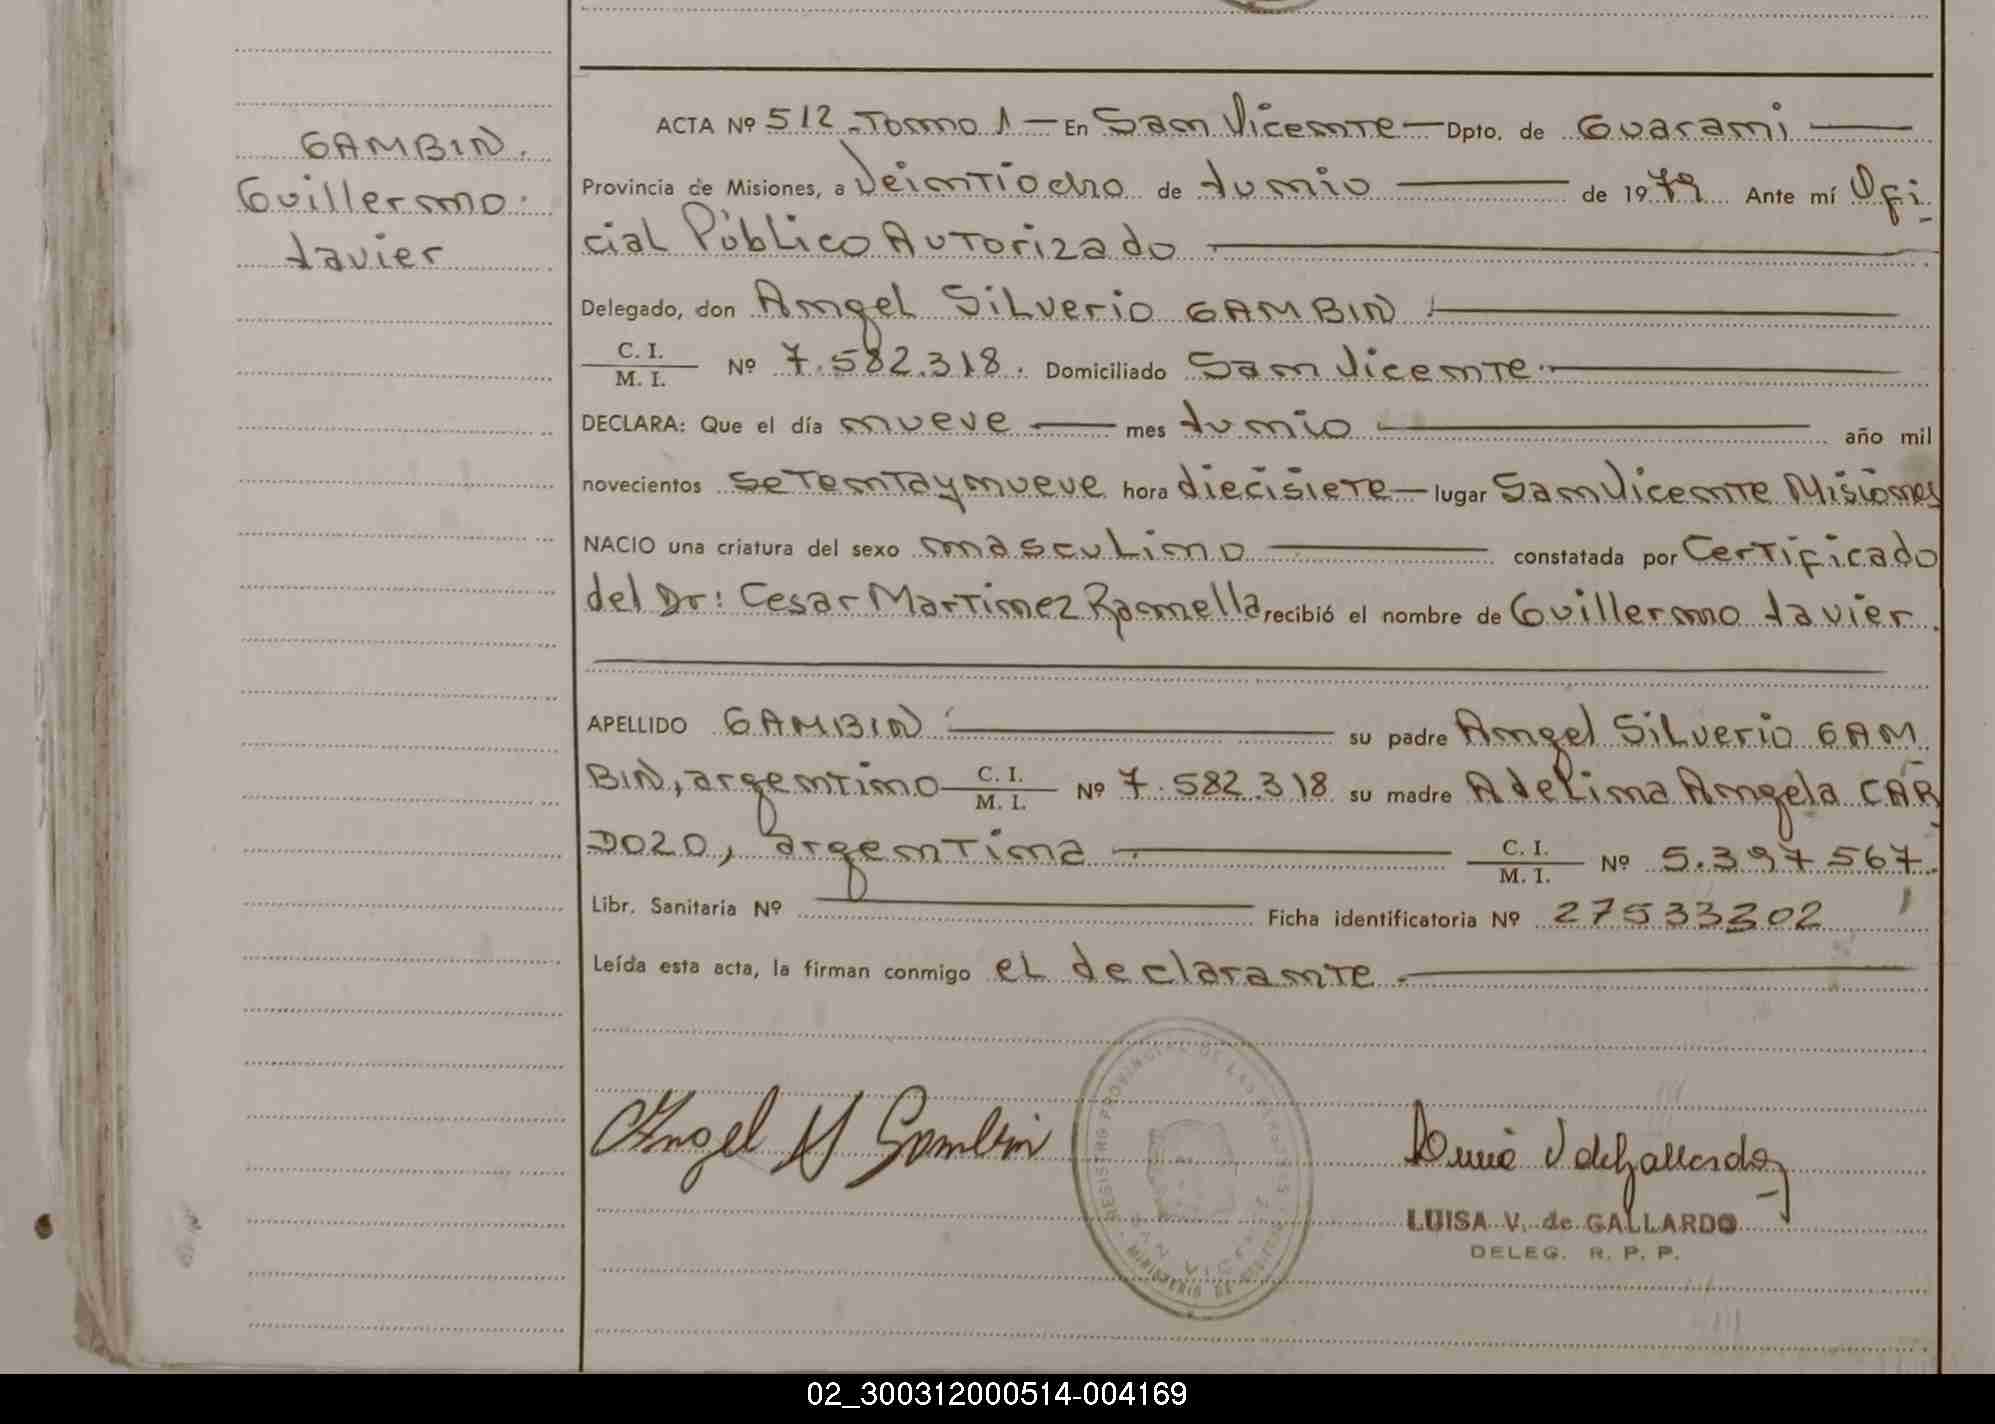 GAMBIN.
Guillermo
Javier
ACTA Nº 512 - Tomo 1 — En San Vicente — Dpto. de Guarani —
Provincia de Misiones, a Veintiocho de Junio — de 1979 Ante mí Ofi
cial Público Autorizado —
Delegado, don Angel Silverio GAMBIN —
C. I. / M. I. Nº 7.582.318. Domiciliado San Vicente —
DECLARA: Que el día nueve — mes Junio — año mil
novecientos setentaynueve hora diecisiete — lugar San Vicente Misiones
NACIO una criatura del sexo masculino — constatada por Certificado
del Dr: Cesar Martinez Ramella recibió el nombre de Guillermo Javier.
APELLIDO GAMBIN — su padre Angel Silverio GAM
BIN, argentino — C. I. / M. I. Nº 7.582.318 su madre Adelina Angela CAR
DOZO, argentina — C. I. / M. I. Nº 5.397567.
Libr. Sanitaria Nº — Ficha identificatoria Nº 27533202
Leída esta acta, la firman conmigo el declarante —
REGISTRO PROVINCIAL DE LAS PERSONAS
SAN VICENTE
MINISTERIO DE
Angel S Gambin
Luisa V de Gallardo
LUISA V. de GALLARDO
DELEG. R. P. P.
02_300312000514-004169